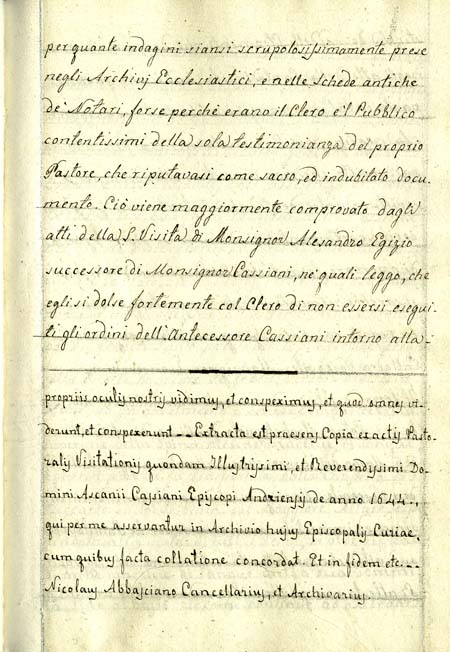 per quante indagini siansi scrupolosissimamente prese
negli Archivj Ecclesiastici, e nelle schede antiche
de' Notari, forse perchè erano il Clero e 'l Pubblico
contentissimi della sola testimonianza del proprio
Pastore, che riputavasi come sacro, ed indubitato docu-
mento. Ciò viene maggiormente comprovato dagli
atti della S. Visita di Monsignor Alesandro Egizio
successore di Monsignor Cassiani, ne' quali leggo, che
egli si dolse fortemente col Clero di non essersi esegui-
ti gli ordini dell'Antecessore Cassiani intorno alla
propriis oculis nostris vidimus, et conspeximus, et quod omnes vi-
derunt, et conspexerunt -- Extracta est praesens Copia ex actis Pasto-
ralis Visitationis quondam Illustrissimi, et Reverendissimi Do-
mini Ascanii Cassiani Episcopi Andriensis de anno 1644.,
qui per me asservantur in Archivio hujus Episcopalis Curiae,
cum quibus facta collatione concordat. Et in fidem etc. --
Nicolaus Abbasciano Cancellarius, et Archivarius.